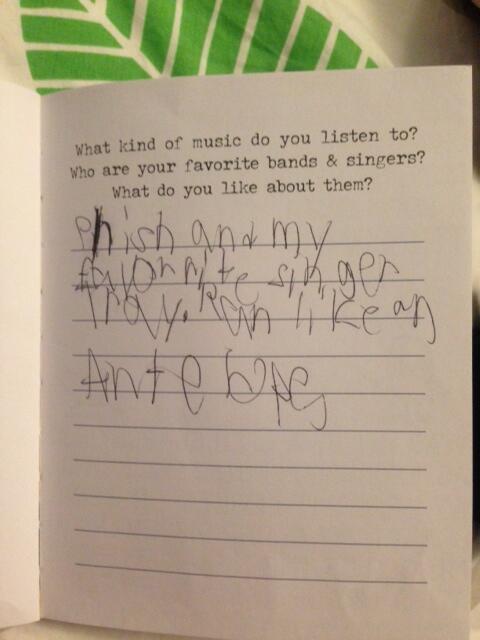 What kind of music do you listen to?
Who are your favorite bands & singers?
What do you like about them?
Phish and my
favorite singer
Tray. Run like an
Antelope